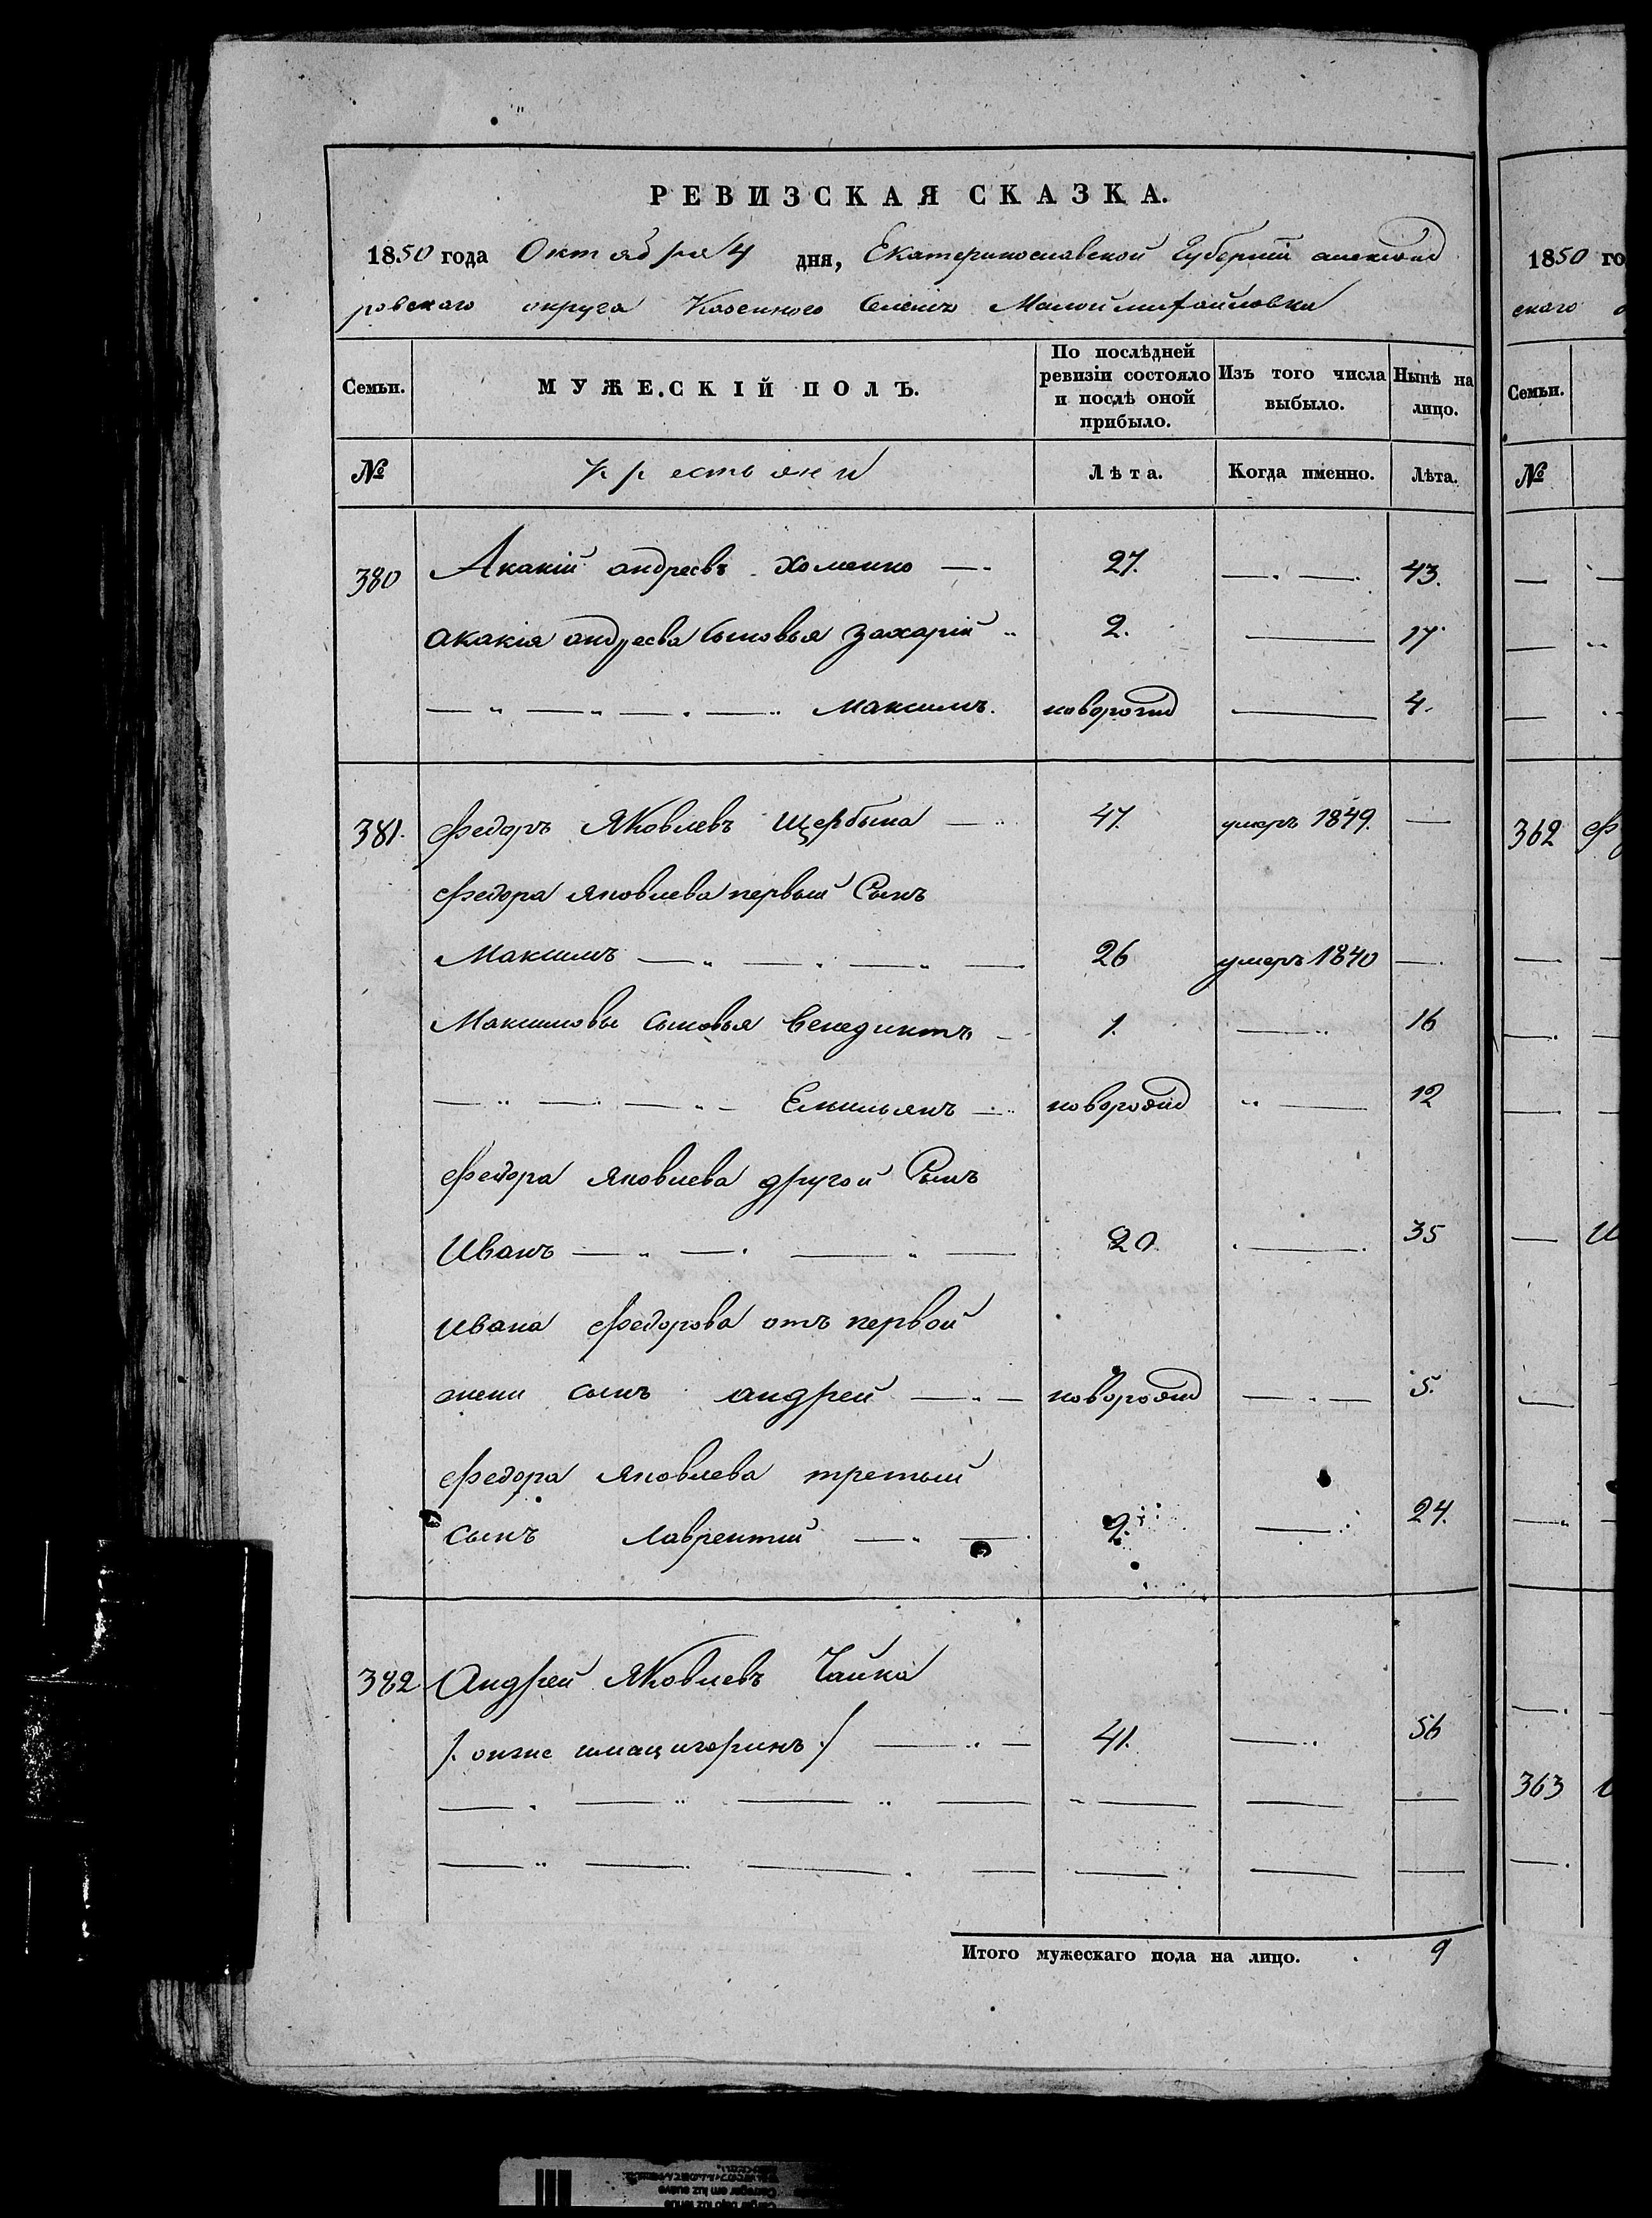 РЕВИЗСКАЯ СКАЗКА.
1850 года Октября 4 дня, Екатеринославской Губерніи александ
ровскаго округа Казеннаго Селенія Малоймихайловки
Семьи. МУЖЕСКІЙ ПОЛЪ. По послѣдней ревизіи состояло и послѣ оной прибыло. Изъ того числа выбыло. Нынѣ на лицо.
№ крестьяни Лѣта. Когда именно. Лѣта.
380 Акакій андреевъ Хоменко 27. 43.
акакія андреева сыновья захарій 2. 17
максимъ. новорожд 4.
381. Федоръ Яковлевъ Щербина 47. умеръ 1849.
Федора яковлева первый Сынъ
Максимъ 26 умеръ 1840
Максимовы сыновья венедиктъ 1. 16
Емильянъ новорожд 12
Федора яковлева другой Сынъ
Иванъ 20. 35
ивана федорова отъ первой
жени сынъ андрей новорожд 5.
Федора яковлева третьий
сынъ лаврентий 9. 24.
382 Андрей Яковлевъ Чайка
/. онже /. 41. 56
Итого мужескаго пола на лицо. 9
1850 го
скаго
Семьи.
№
362 Ф
И
363